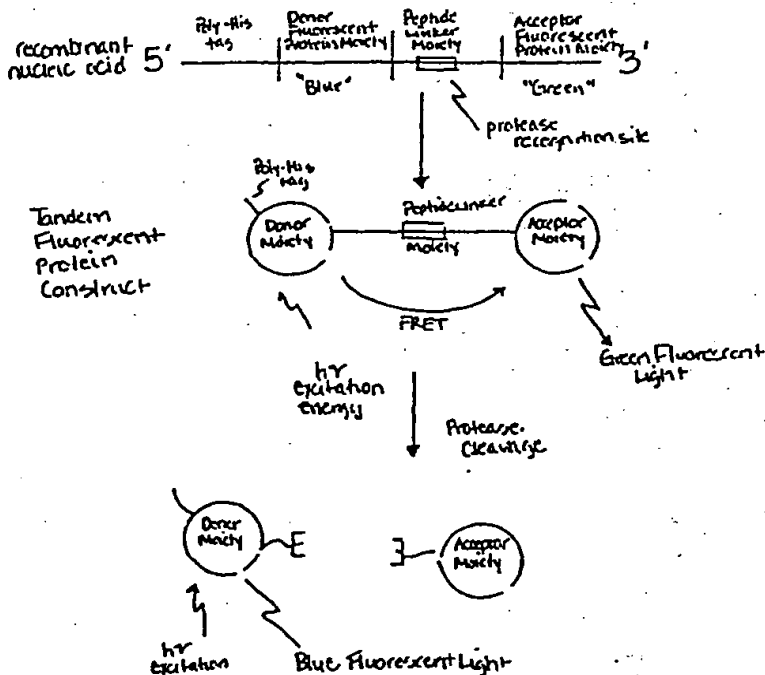 recombinant
nucleic acid
5'
Poly-His
tag
Donor
Fluorescent
Protein Moiety
"Blue"
Peptide
Linker
Moiety
Acceptor
Fluorescent
Protein Moiety
"Green"
3'
protease
recognition site
Tandem
Fluorescent
Protein
Construct
Poly-His
tag
Donor
Moiety
Peptide Linker
Moiety
Acceptor
Moiety
FRET
Green Fluorescent
Light
hν
excitation
energy
Protease
Cleavage
Donor
Moiety
Acceptor
Moiety
hν
excitation
Blue Fluorescent Light